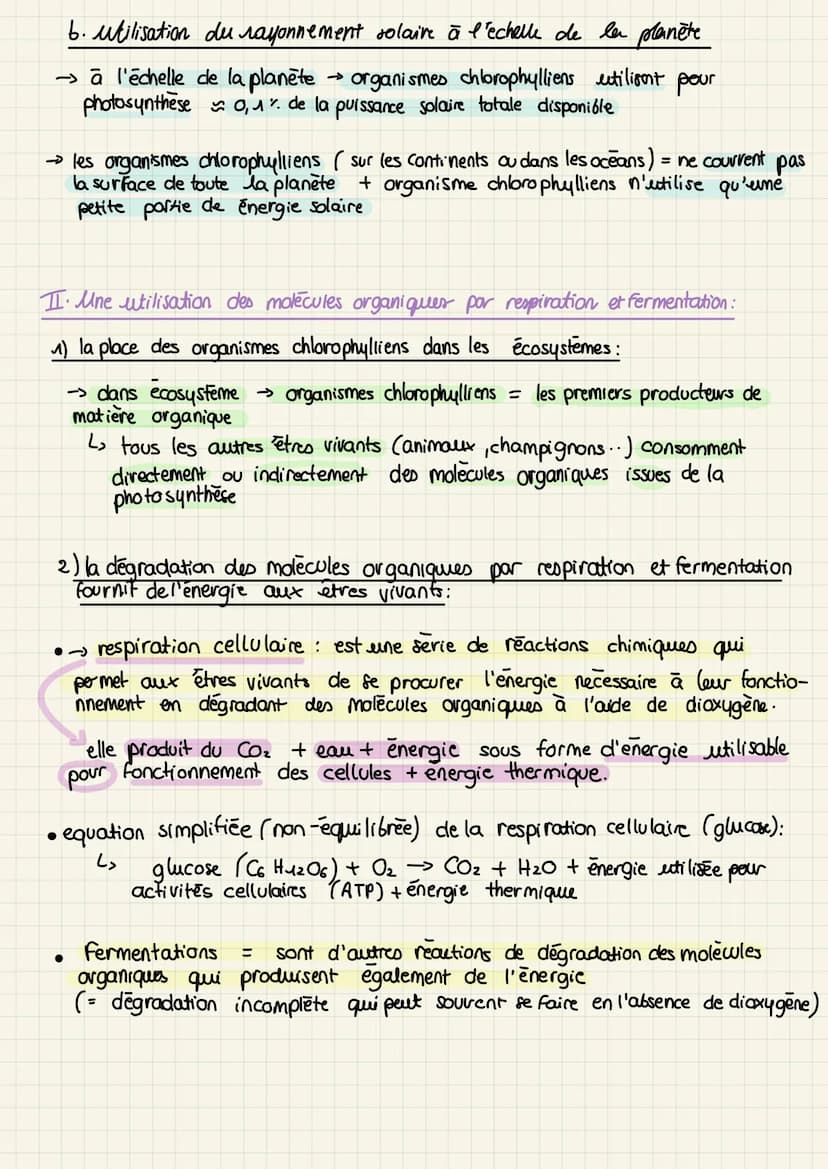 b. Utilisation du rayonnement solaire à l'echelle de la planète
→ à l'échelle de la planète → organismes chlorophylliens utilisent pour
photosynthèse ≈ 0,1% de la puissance solaire totale disponible
→ les organismes chlorophylliens ( sur les continents ou dans les océans) = ne couvrent pas
la surface de toute la planète + organisme chlorophylliens n'utilise qu'une
petite partie de énergie solaire
II. Une utilisation des molécules organiques par respiration et fermentation:
1) la place des organismes chlorophylliens dans les écosystèmes:
→ dans écosystème → organismes chlorophylliens = les premiers producteurs de
matière organique
↳ tous les autres êtres vivants (animaux, champignons..) consomment
directement ou indirectement des molécules organiques issues de la
photosynthèse
2) la dégradation des molécules organiques par respiration et fermentation
fournit de l'énergie aux êtres vivants:
•→ respiration cellulaire : est une série de réactions chimiques qui
permet aux êtres vivants de se procurer l'énergie nécessaire à leur fonctio-
nnement en dégradant des molécules organiques à l'aide de dioxygène.
elle produit du CO₂ + eau + énergie sous forme d'énergie utilisable
pour fonctionnement des cellules + énergie thermique.
• equation simplifiée (non-équilibrée) de la respiration cellulaire (glucose):
↳ glucose (C₆H₁₂O₆) + O₂ → CO₂ + H₂O + énergie utilisée pour
activités cellulaires (ATP) + énergie thermique
• Fermentations = sont d'autres réactions de dégradation des molécules
organiques qui produisent également de l'énergie
(= dégradation incomplète qui peut souvent se faire en l'absence de dioxygène)